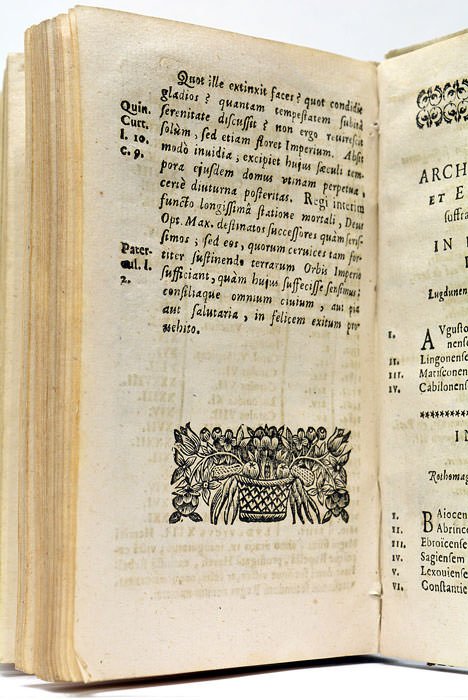 Quot ille extinxit faces? quot condidit
gladios? quantam tempestatem subitâ
serenitate discussit? non ergo reuirescit
solùm, sed etiam floret Imperium. Absit
modò inuidia; excipiet hujus sæculi tem-
pora ejusdem domus vtinam perpetua,
certè diuturna posteritas. Regi interim
functo longissimâ statione mortali, Deus
Opt. Max. destinatos successores quàm seris-
simos; sed eos, quorum ceruices tam for-
titer sustinendo terrarum Orbis Imperio
sufficiant, quàm hujus suffecisse sensimus;
consiliaque omnium ciuium, aut pia
aut salutaria, in felicem exitum pro
uehito.
Quin.
Curt.
l. 10.
c. 9.
Pater-
cul. l.
2.
ARCH
ET E
suffra
IN
Lugdunen
I. AVgusto
nense
II. Lingonense
III. Matisconen
IV. Cabilonens
IN
Rothomag
I. BAiocen
II. Abrince
III. Ebroïcense
IV. Sagiensem
V. Lexouiense
VI. Constantie